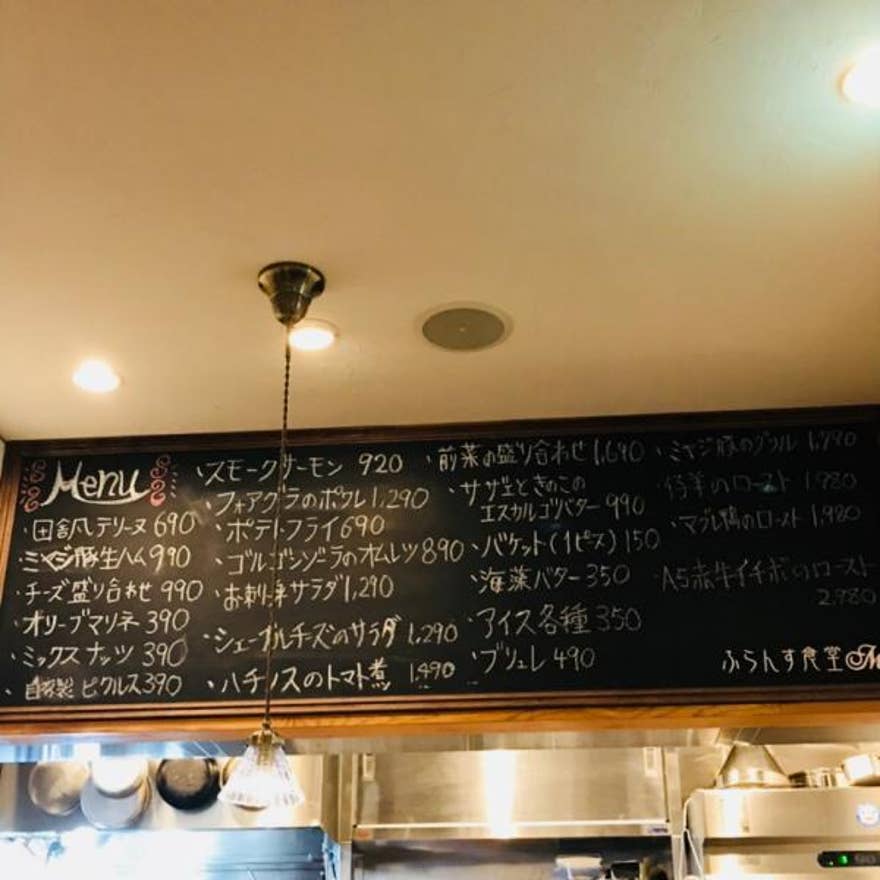 Menu
・田舎風テリーヌ 690
・ミヤジ豚生ハム 990
・チーズ盛り合わせ 990
・オリーブマリネ 390
・ミックスナッツ 390
・自家製ピクルス 390
・スモークサーモン 920
・フォアグラのポワレ 1,290
・ポテトフライ 690
・ゴルゴンゾーラのオムレツ 890
・お刺身サラダ 1,290
・シェーブルチーズのサラダ 1,290
・ハチノスのトマト煮 1,490
・前菜の盛り合わせ 1,690
・サザエときのこの
エスカルゴバター 990
・バケット(1ピス) 150
・海藻バター 350
・アイス各種 350
・ブリュレ 490
・ミヤジ豚のグリル 1,790
・仔羊のロースト 1,980
・マグレ鴨のロースト 1,980
・A5赤牛イチボのロースト
2,980
ふらんす食堂